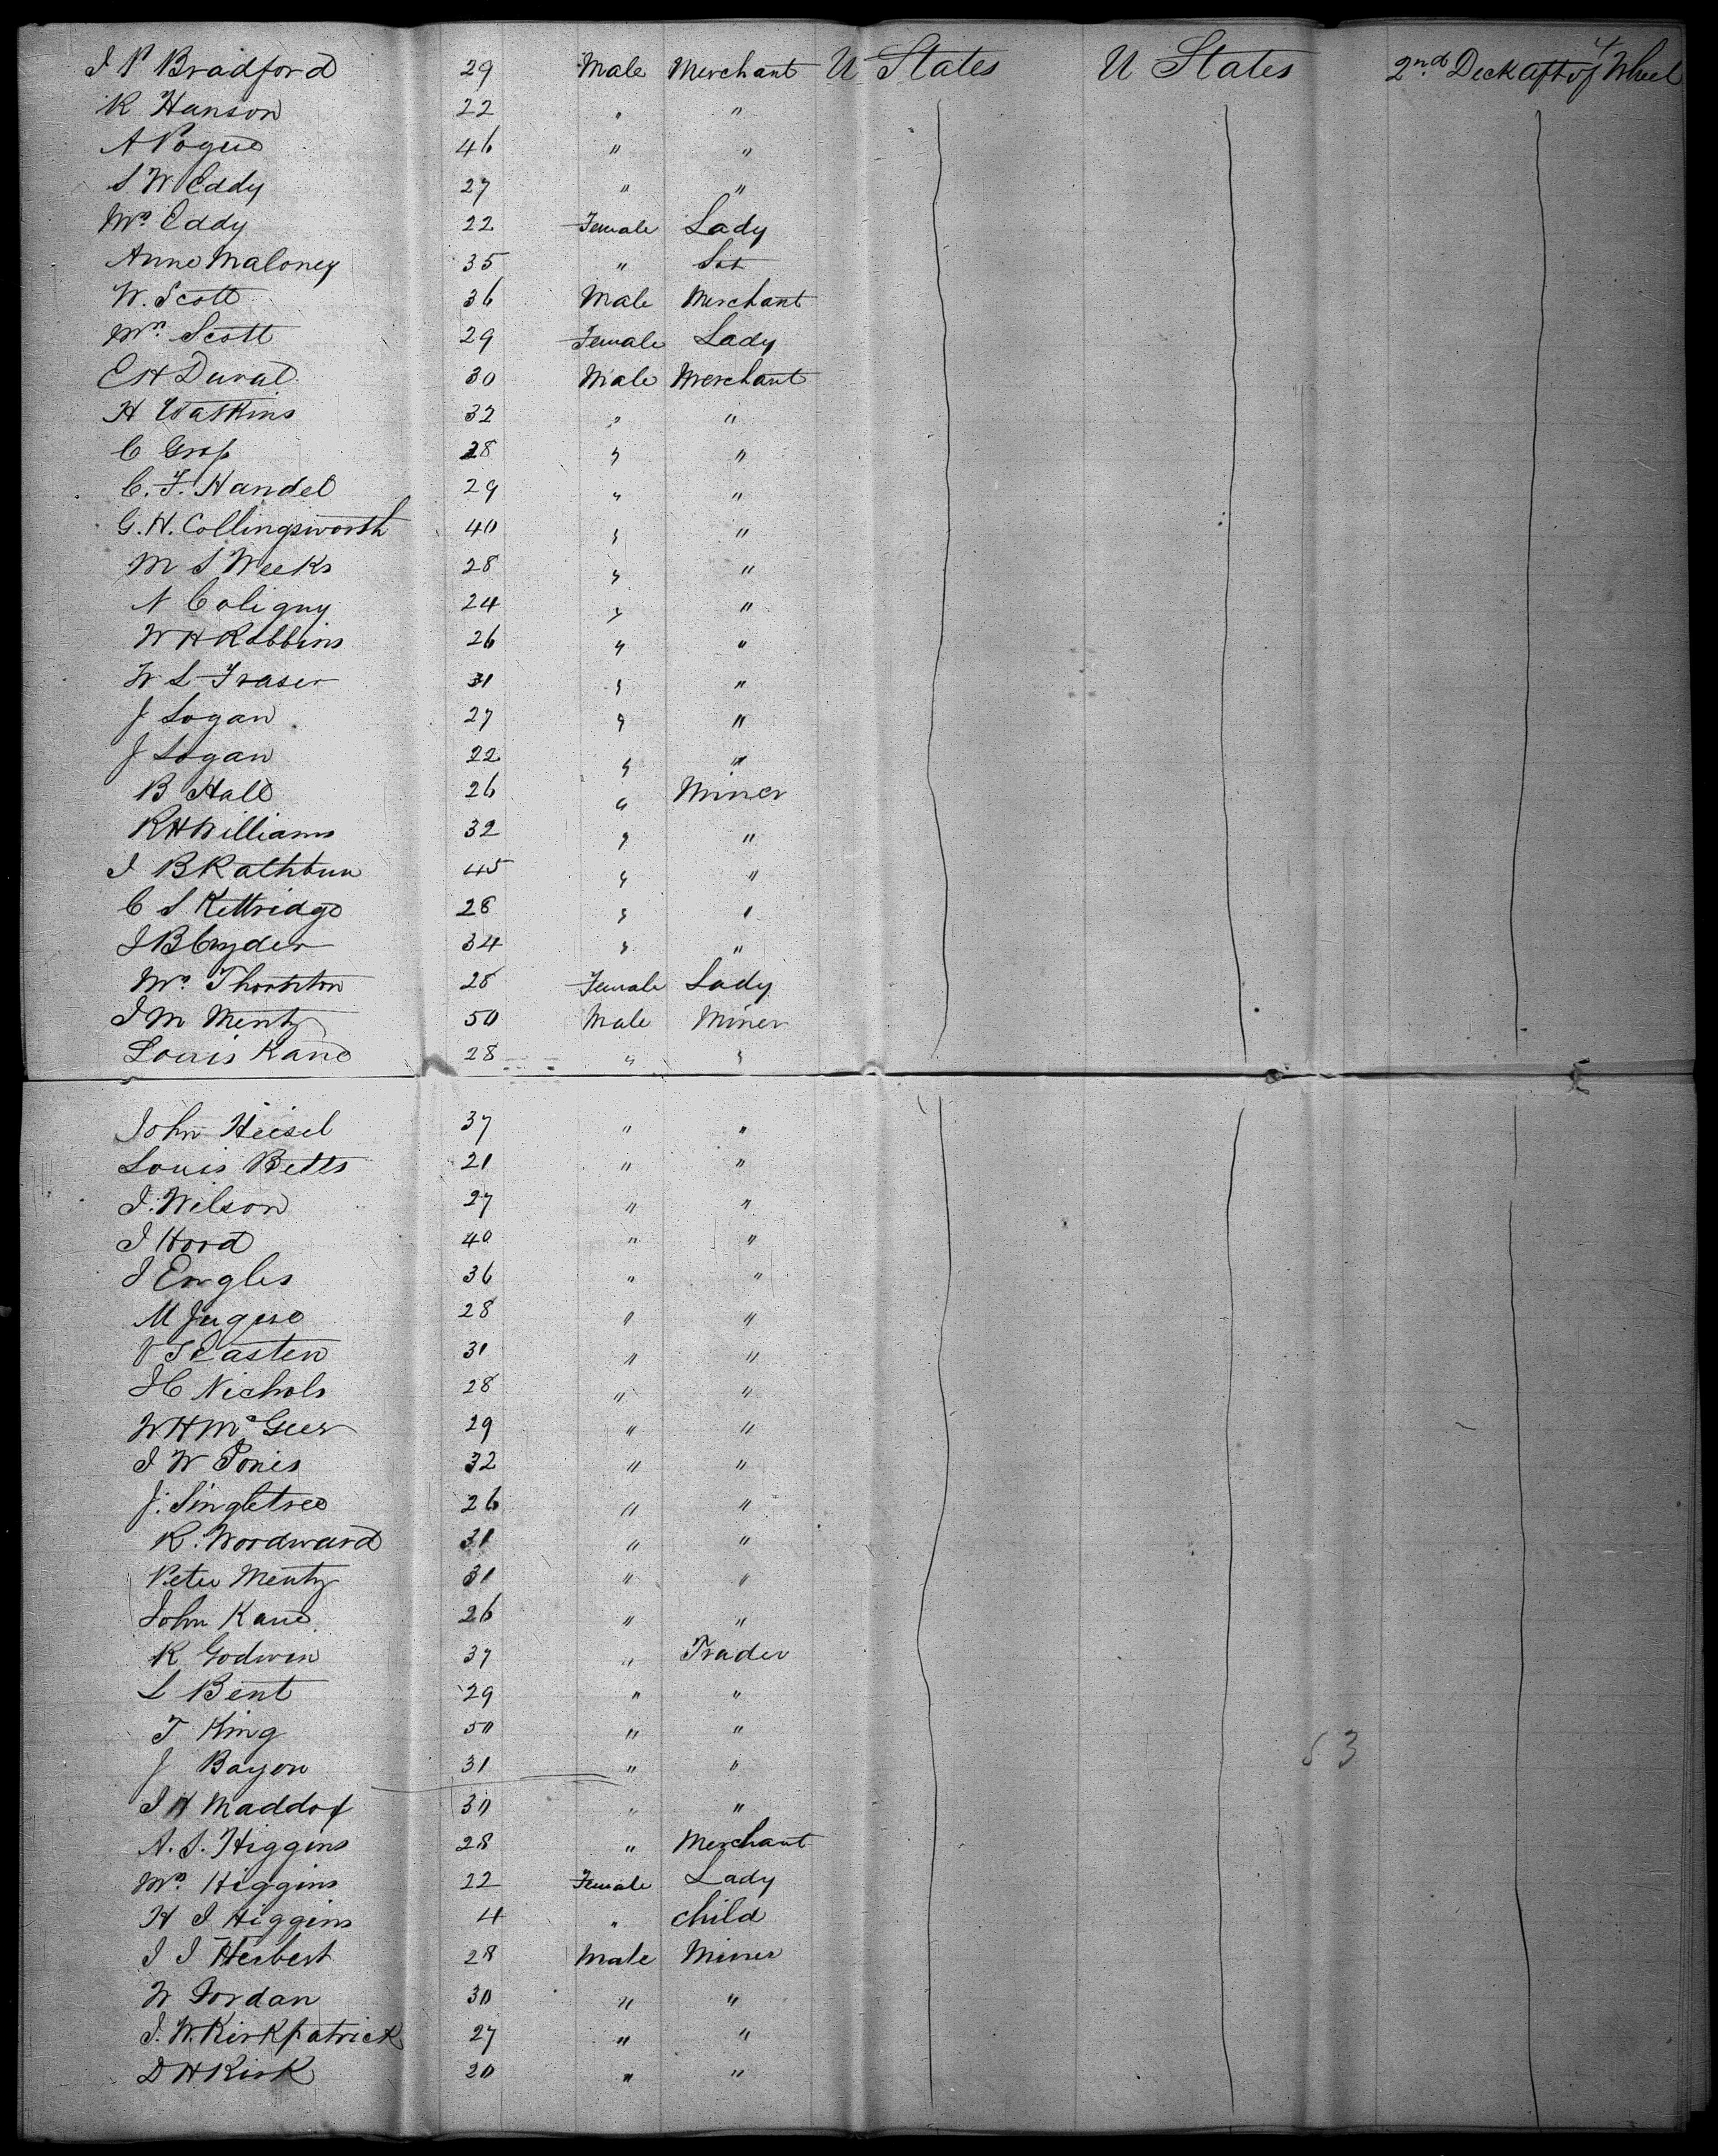 J P Bradford 29 Male Merchant U States U States 2nd Deck aft of Wheel
R Hanson 22 " "
A Pogue 46 " "
S W Eddy 27 " "
Mrs Eddy 22 Female Lady
Anne Maloney 35 "
W. Scott 36 Male Merchant
Mrs Scott 29 Female Lady
C H Duval 30 Male Merchant
H Watkins 32 " "
C Gross 28 " "
C. F. Handel 29 " "
G. H. Collingsworth 40 " "
M S Weeks 28 " "
N Coligny 24 " "
W H Robbins 26 " "
W L Fraser 31 " "
J Logan 27 " "
J Logan 22 " "
B Hall 26 " Miner
R H Williams 32 " "
J B Rathbun 45 " "
C S Kettridge 28 " "
J B Cryder 34 " "
Mrs Thornton 28 Female Lady
J M Mentz 50 Male Miner
Louis Kane 28 " "
John Heisel 37 " "
Louis Betts 21 " "
J. Wilson 27 " "
J Hood 40 " "
J Engles 36 " "
M Jugue 28 " "
V S Easten 31 " "
J C Nichols 28 " "
W H McGeer 29 " "
J W Jones 32 " "
J. Singletree 26 " "
R. Woodward 31 " "
Peter Mentz 31 " "
John Kane 26 " "
R Godwin 37 " Trader
L Bent 29 " "
T King 50 " "
J Bayon 31 " " 53
J H Maddox 30 " "
A. S. Higgins 28 " Merchant
Mrs Higgins 22 Female Lady
H J Higgins 4 " child
J J Herbert 28 Male Miner
W Jordan 30 " "
J. W. Kirkpatrick 27 " "
D H Kirk 20 " "